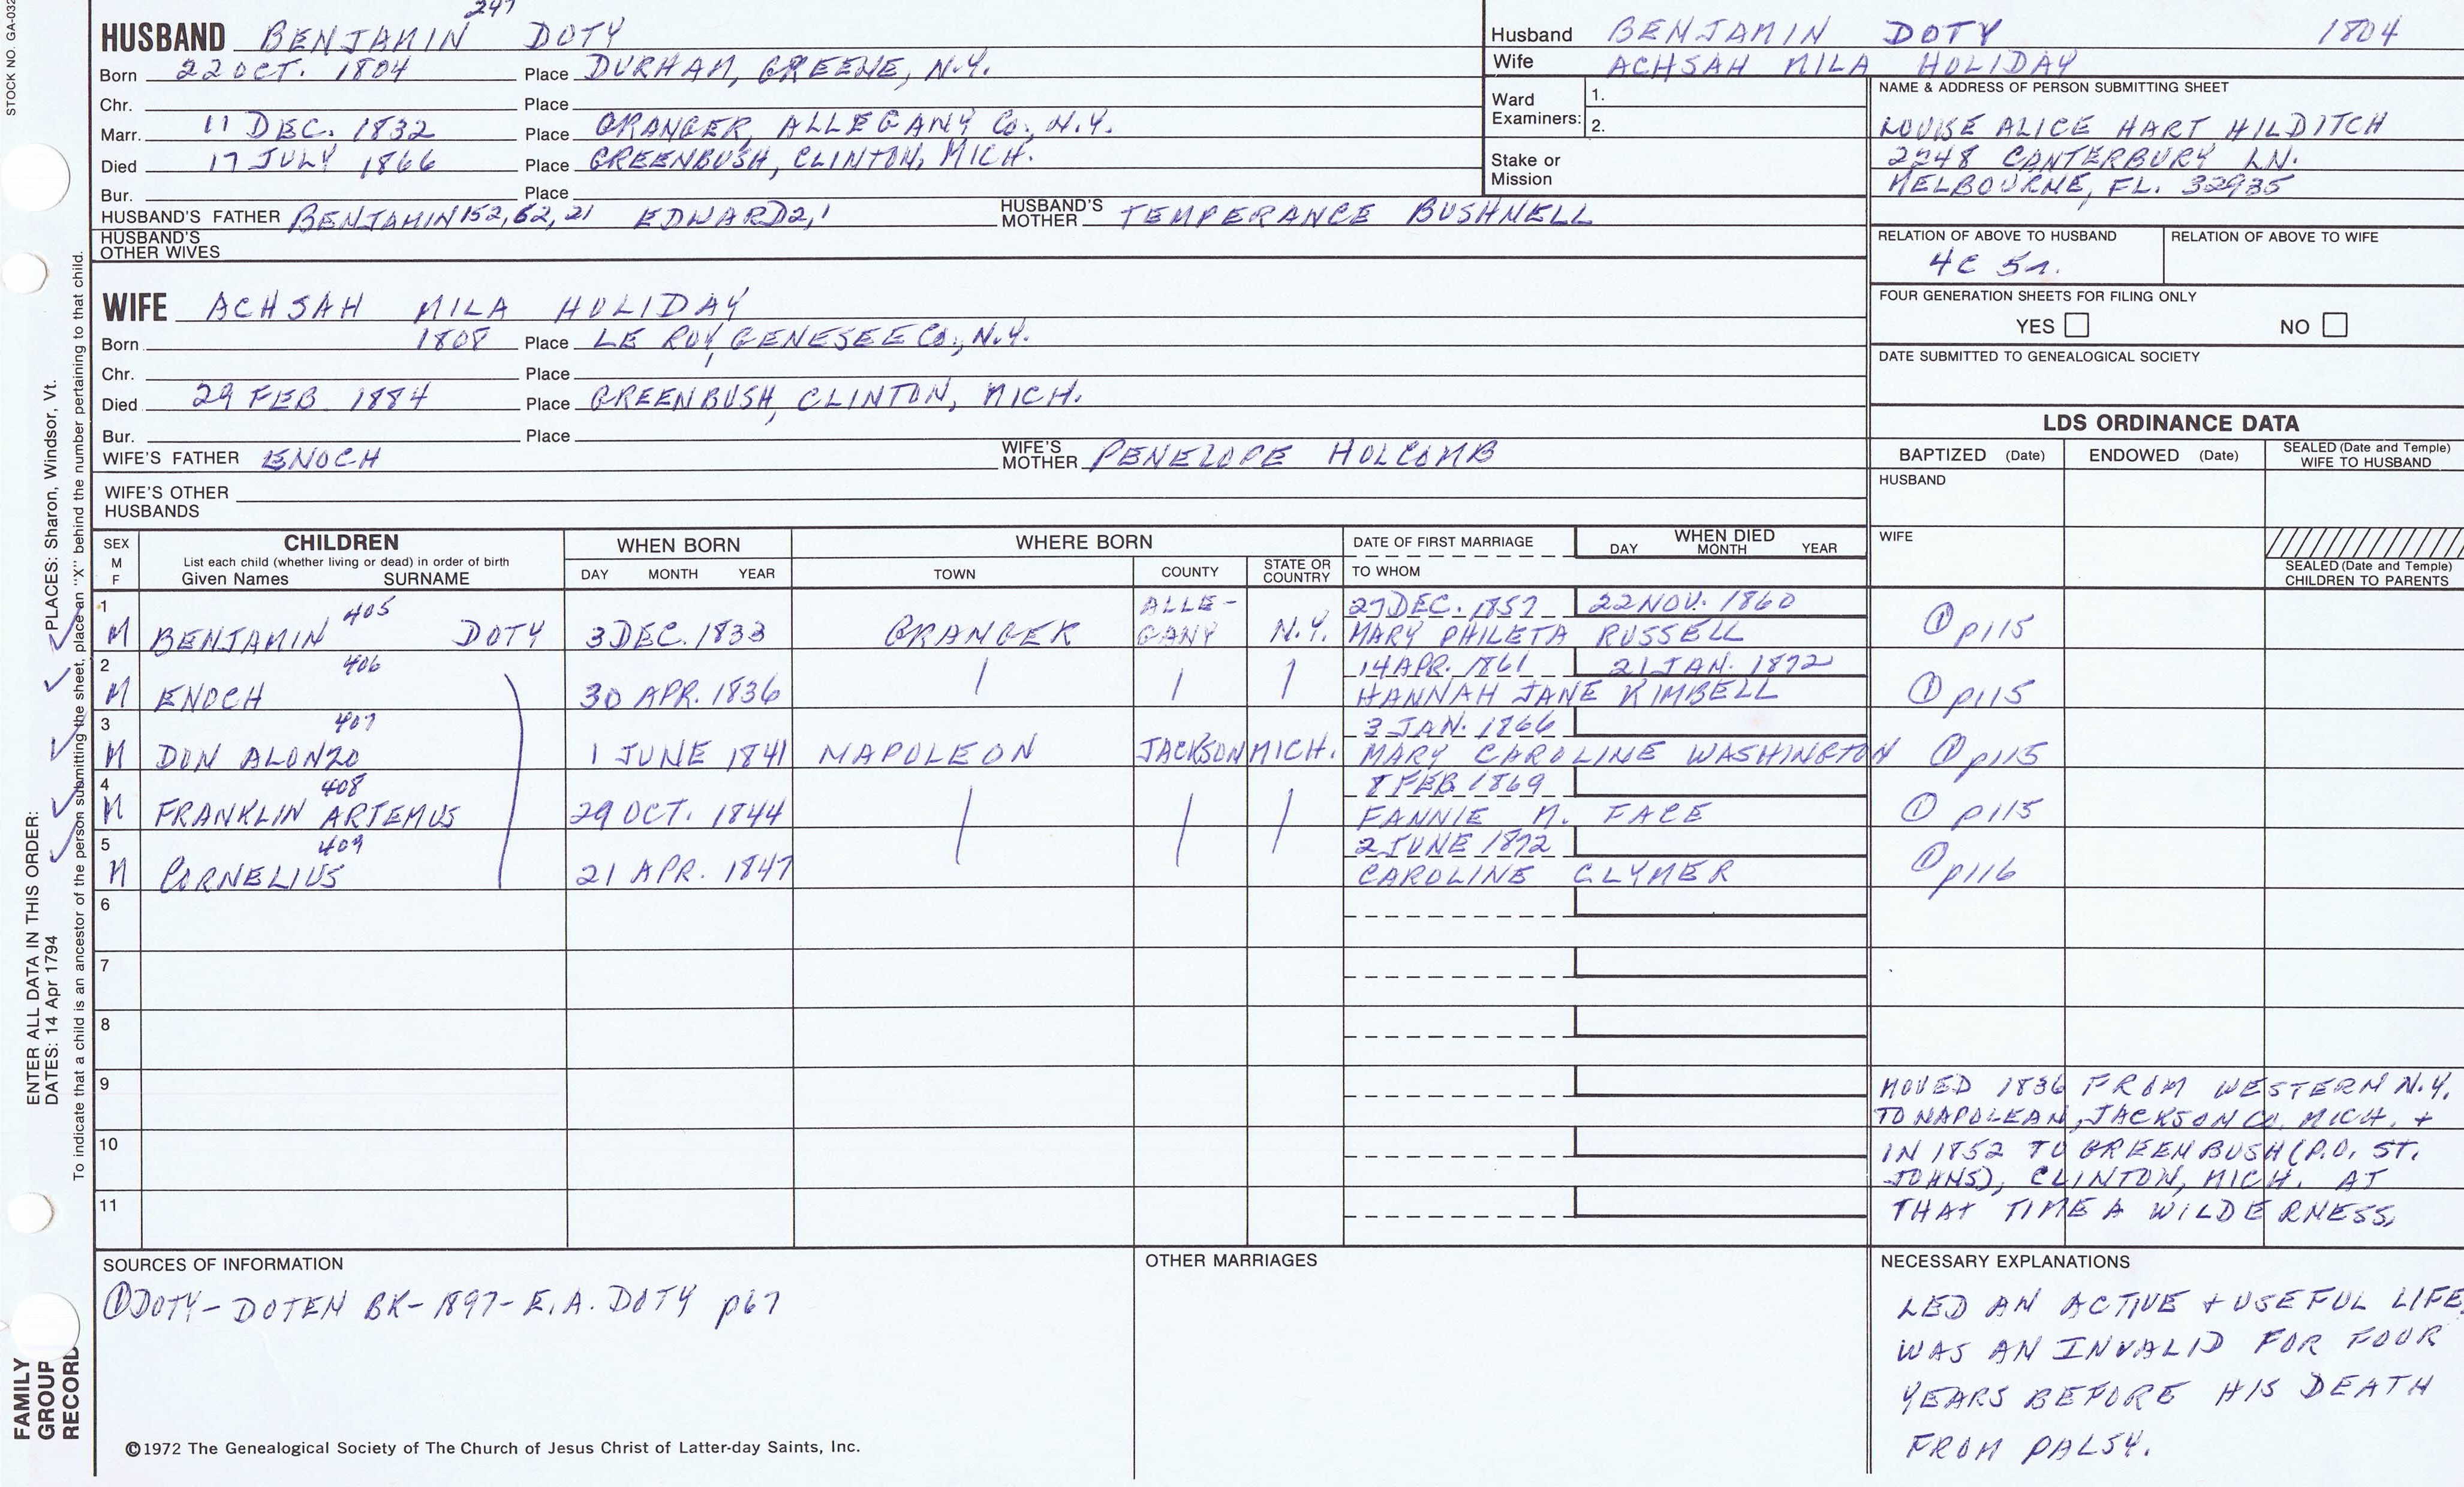 STOCK NO. GA-032
247
HUSBAND BENJAMIN DOTY
Born 22 OCT. 1804 Place DURHAM, GREENE, N.Y.
Chr. Place
Marr. 11 DEC. 1832 Place GRANGER, ALLEGANY CO., N.Y.
Died 17 JULY 1866 Place GREENBUSH, CLINTON, MICH.
Bur. Place
HUSBAND'S FATHER BENJAMIN 152, 62, 21 EDWARD 2, 1 HUSBAND'S MOTHER TEMPERANCE BUSHNELL
HUSBAND'S OTHER WIVES
WIFE ACHSAH MILA HOLIDAY
Born 1808 Place LE ROY, GENESEE CO., N.Y.
Chr. Place
Died 29 FEB 1884 Place GREENBUSH, CLINTON, MICH.
Bur. Place
WIFE'S FATHER ENOCH WIFE'S MOTHER PENELOPE HOLCOMB
WIFE'S OTHER HUSBANDS
Husband BENJAMIN DOTY 1804
Wife ACHSAH MILA HOLIDAY
Ward Examiners: 1.
2.
Stake or Mission
NAME & ADDRESS OF PERSON SUBMITTING SHEET
LOUISE ALICE HART HILDITCH
2248 CANTERBURY LN.
MELBOURNE, FL. 32935
RELATION OF ABOVE TO HUSBAND RELATION OF ABOVE TO WIFE
4C 5r.
FOUR GENERATION SHEETS FOR FILING ONLY
YES NO
DATE SUBMITTED TO GENEALOGICAL SOCIETY
LDS ORDINANCE DATA
BAPTIZED (Date) ENDOWED (Date) SEALED (Date and Temple) WIFE TO HUSBAND
HUSBAND
WIFE
SEALED (Date and Temple) CHILDREN TO PARENTS
SEX M F CHILDREN WHEN BORN WHERE BORN DATE OF FIRST MARRIAGE WHEN DIED
List each child (whether living or dead) in order of birth
Given Names SURNAME DAY MONTH YEAR TOWN COUNTY STATE OR COUNTRY TO WHOM DAY MONTH YEAR
1 405 ALLE- 27 DEC. 1857 22 NOV. 1860
M BENJAMIN DOTY 3 DEC. 1833 GRANGER GANY N.Y. MARY PHILETA RUSSELL ① p115
2 406 14 APR. 1861 21 JAN. 1872
M ENOCH 30 APR. 1836 HANNAH JANE KIMBELL ① p115
3 407 3 JAN. 1866
M DON ALONZO 1 JUNE 1841 NAPOLEON JACKSON MICH. MARY CAROLINE WASHINGTON ① p115
4 408 8 FEB 1869
M FRANKLIN ARTEMUS 29 OCT. 1844 FANNIE M. FACE ① p115
5 409 2 JUNE 1872
M CORNELIUS 21 APR. 1847 CAROLINE CLYMER ① p116
6
7
8
9
10
11
MOVED 1836 FROM WESTERN N.Y.
TO NAPOLEAN, JACKSON CO. MICH. +
IN 1852 TO GREENBUSH (P.O. ST.
JOHNS), CLINTON, MICH. AT
THAT TIME A WILDERNESS.
SOURCES OF INFORMATION
① DOTY-DOTEN BK-1897-E.A. DOTY p67
OTHER MARRIAGES
NECESSARY EXPLANATIONS
LED AN ACTIVE + USEFUL LIFE.
WAS AN INVALID FOR FOUR
YEARS BEFORE HIS DEATH
FROM PALSY.
©1972 The Genealogical Society of The Church of Jesus Christ of Latter-day Saints, Inc.
FAMILY GROUP RECORD
ENTER ALL DATA IN THIS ORDER:
DATES: 14 Apr 1794 PLACES: Sharon, Windsor, Vt.
To indicate that a child is an ancestor of the person submitting the sheet, place an "X" behind the number pertaining to that child.